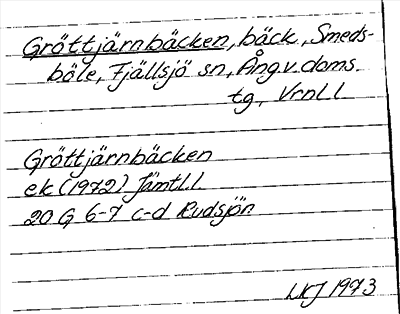 Gröttjärnbäcken, bäck, Smeds-
böle, Fjällsjö sn, Ång.v. doms.
tg, Vrnl. l
Gröttjärnbäcken
ek (1972) Jämtl. l.
20 G 6-7 c-d Rudsjön
LKJ 1973